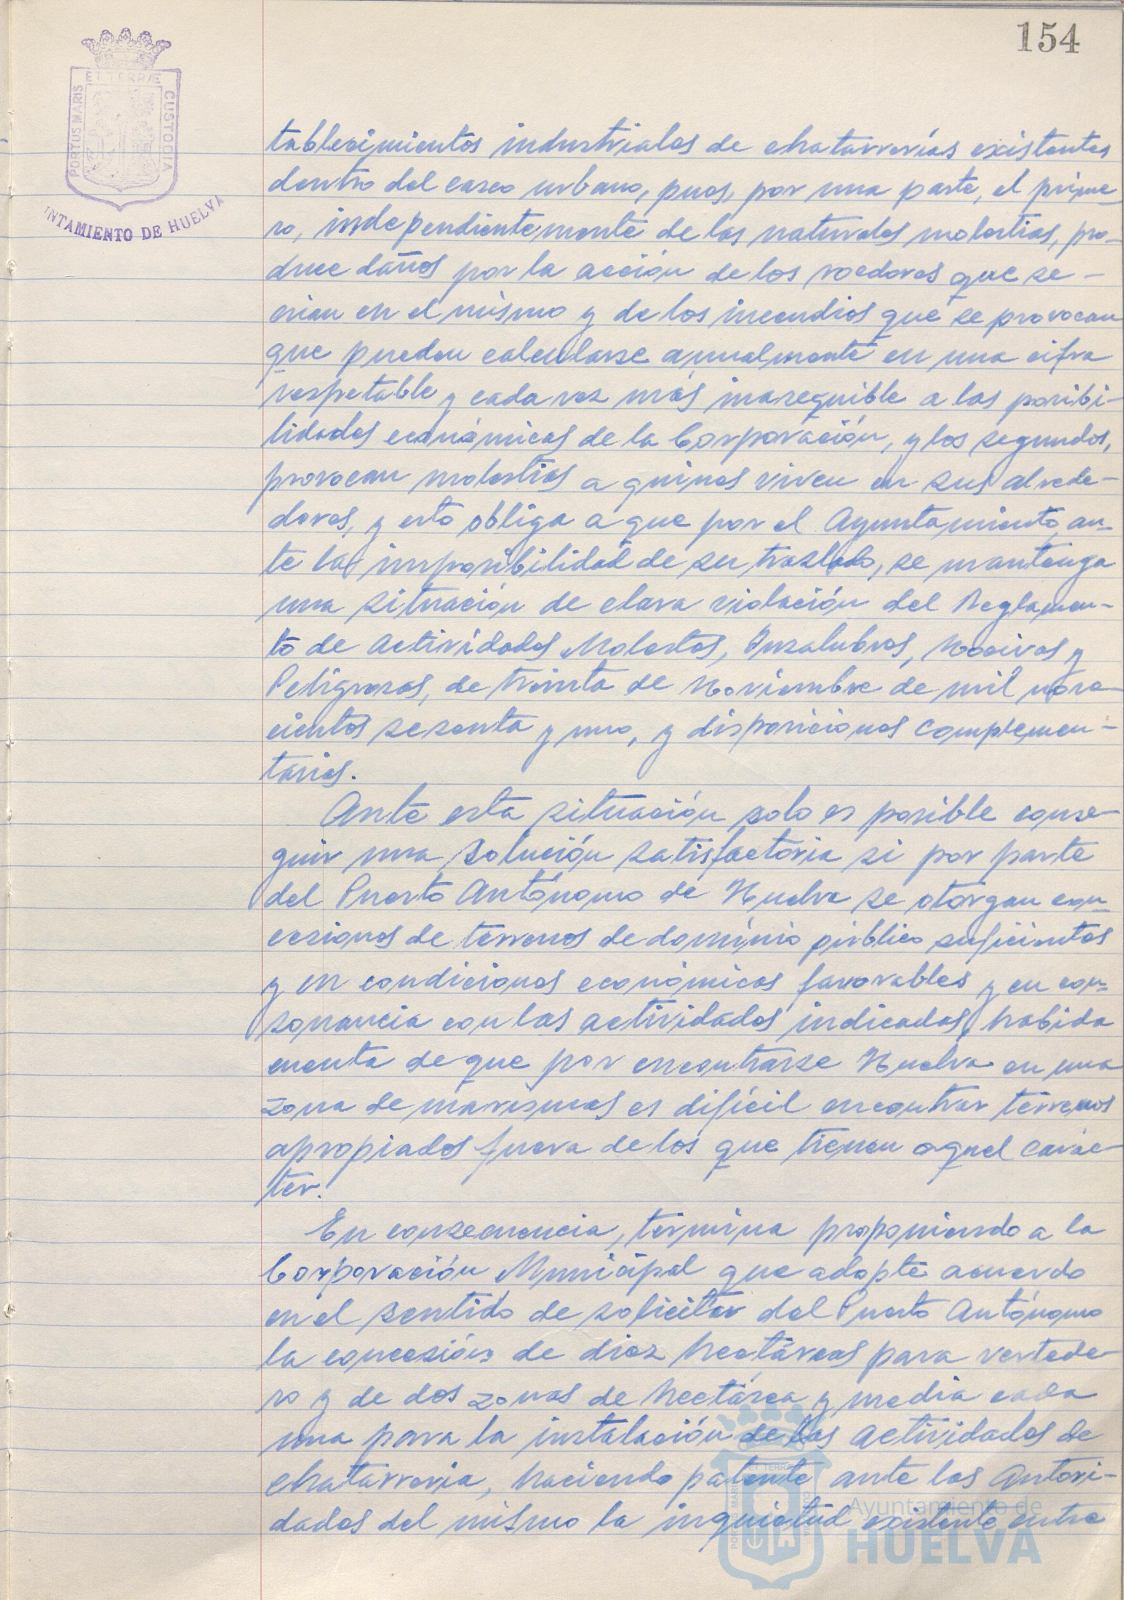 154
ET TERRÆ
PORTUS MARIS
CUSTODIA
NTAMIENTO DE HUELVA
tablecimientos industriales de chatarrerías existentes
dentro del casco urbano, pues, por una parte, el prime-
ro, independientemente de las naturales molestias, pro-
duce daños por la acción de los roedores que se
crian en el mismo y de los incendios que se provocan
que pueden calcularse anualmente en una cifra
respetable y cada vez más inasequible a las posibi-
lidades económicas de la Corporación, y los segundos,
provocan molestias a quines viven en sus alrede-
dores, y esto obliga a que por el Ayuntamiento, an-
te la imposibilidad de su traslado, se mantenga
una situación de clara violación del Reglamen-
to de Actividades Molestas, Insalubres, Nocivas y
Peligrosas, de treinta de Noviembre de mil nove-
cientos sesenta y uno, y disposiciones complemen-
tarias.
Ante esta situación solo es posible conse-
guir una solución satisfactoria si por parte
del Puerto Autónomo de Huelva se otorgan con-
cesiones de terrenos de dominio público suficientes
y en condiciones económicas favorables y en con-
sonancia con las actividades indicadas, habida
cuenta de que por encontrarse Huelva en una
zona de marismas es difícil encontrar terrenos
apropiados fuera de los que tienen aquel carac-
ter.
En consecuencia, termina proponiendo a la
Corporación Municipal que adopte acuerdo
en el sentido de solicitar del Puerto Autónomo
la concesión de diez hectáreas para vertede-
ro y de dos zonas de hectárea y media cada
una para la instalación de las actividades de
chatarreria, haciendo patente ante las Autori-
dades del mismo la inquietud existente entre
Ayuntamiento de
HUELVA